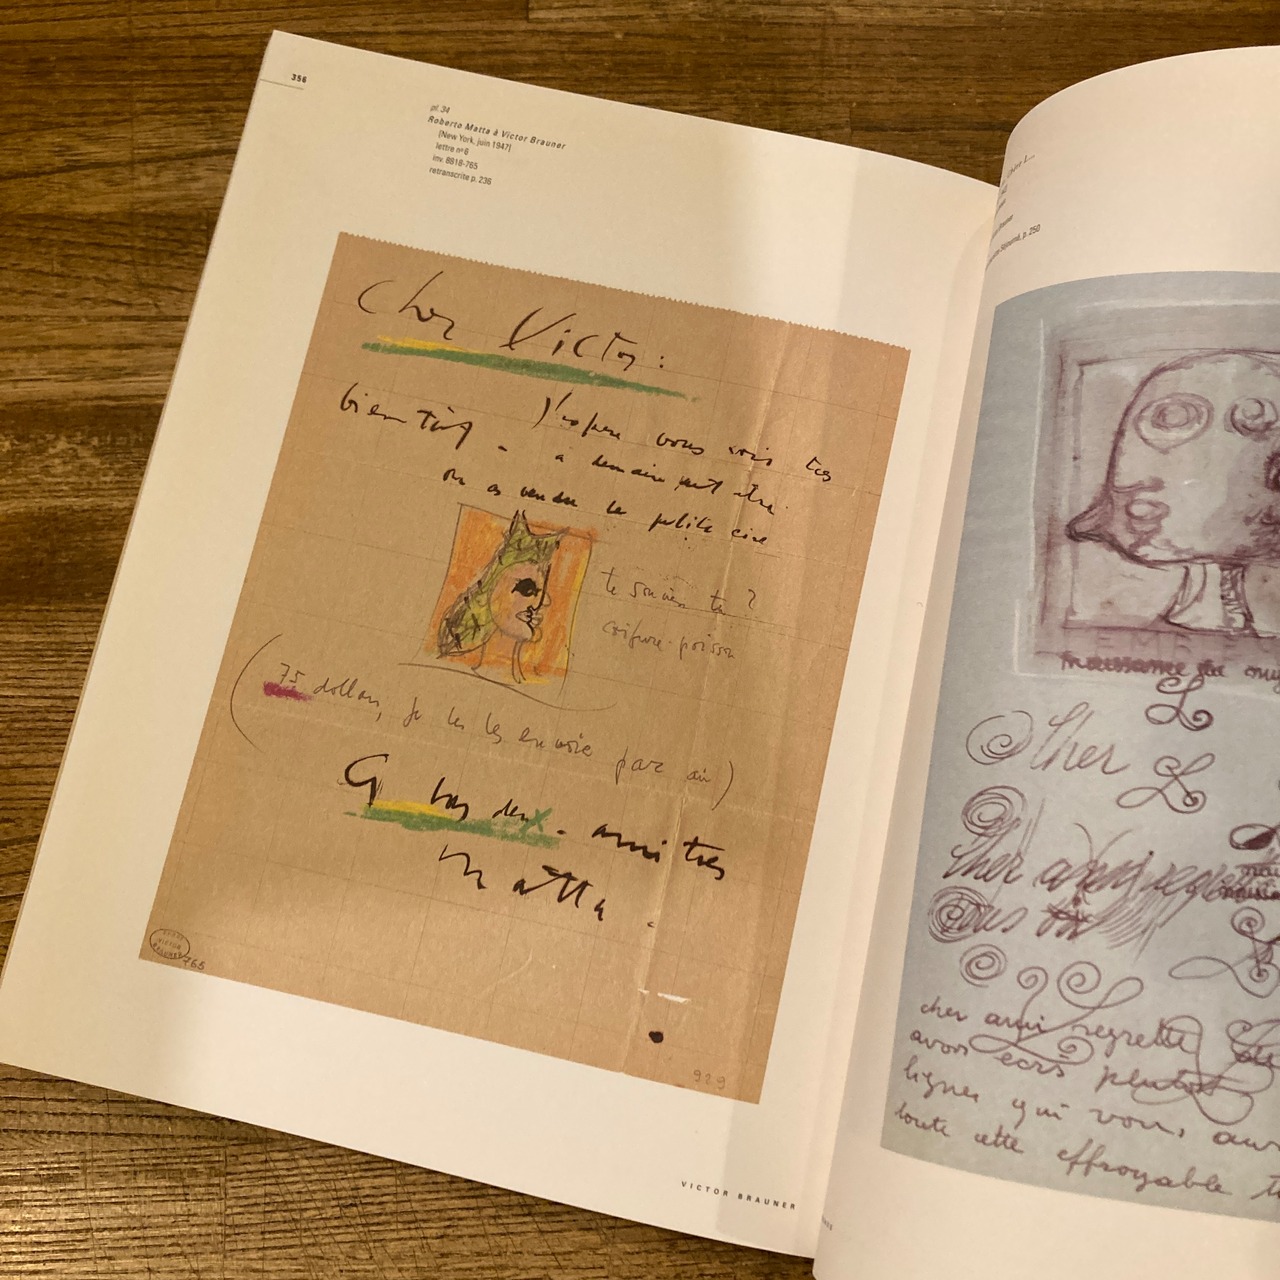 356
pl. 34
Roberto Matta à Victor Brauner
[New York, juin 1947]
lettre nº 6
inv. 8818-765
retranscrite p. 236
Cher Victor :
J'espere vous voir tres
bien tôt - a demain peut etre.
on a vendu la petite cire
te souviens tu ?
coifure-poisson
(75 dollars, je te les envoie par air)
a vous deux - amities
Matta.
VICTOR
BRAUNER
765
929
VICTOR BRAUNER
p. 250
naissance du
Cher
cher ami regrette
cher ami regrette de
avoir ecris plutot
lignes qui vous
toute cette effroyable